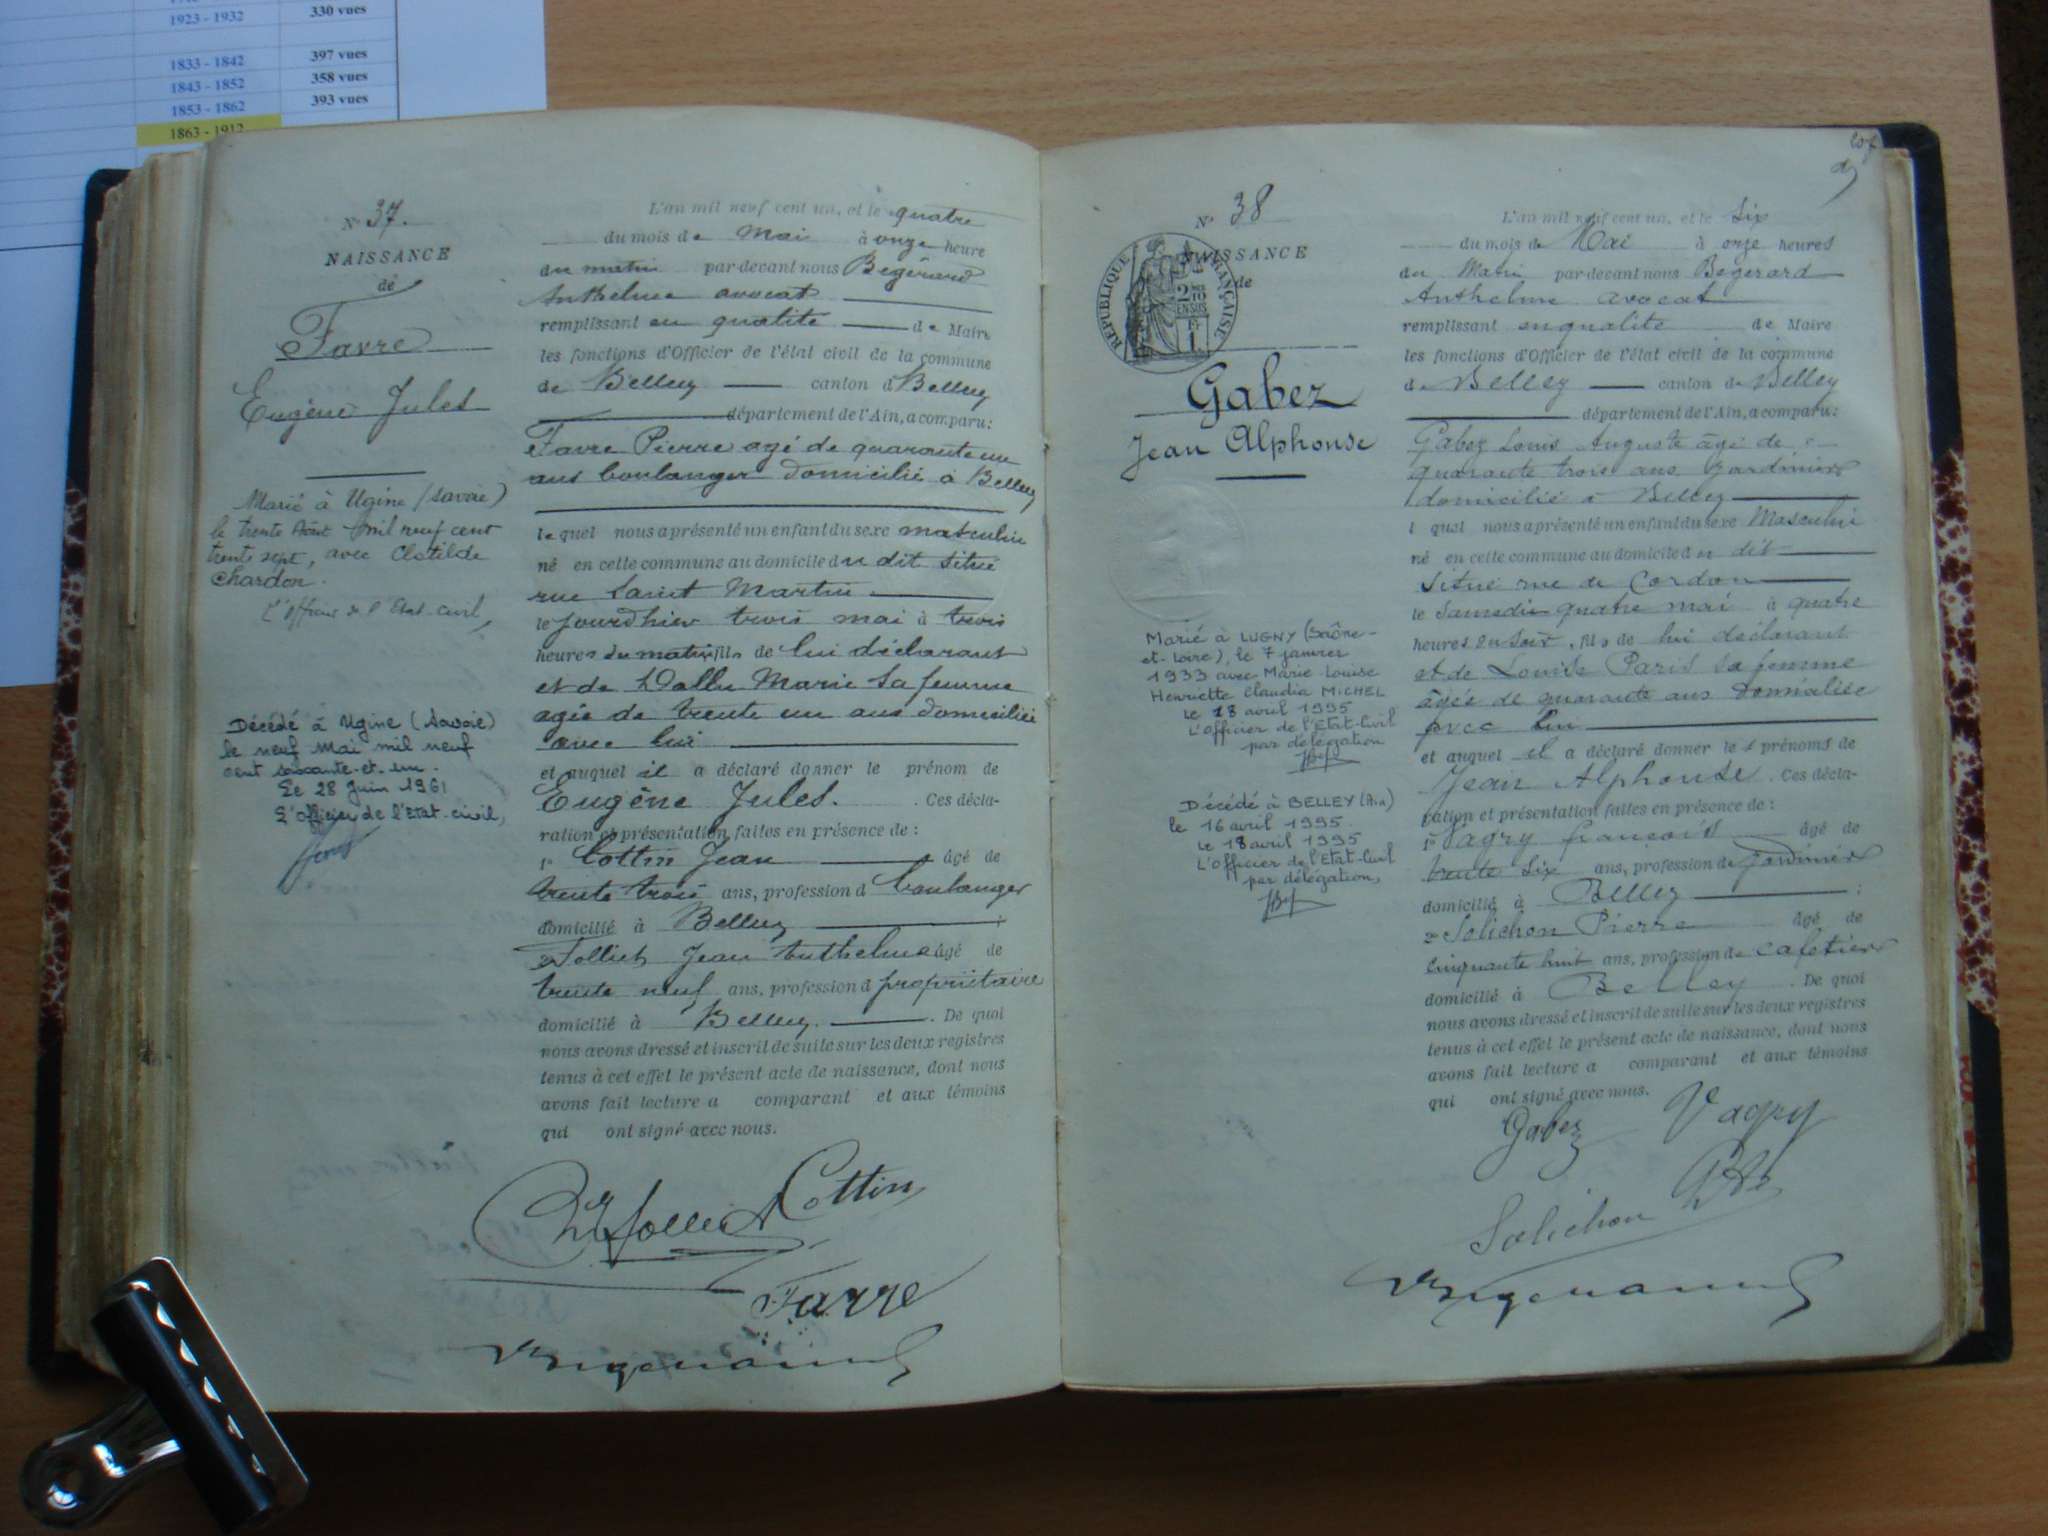 1923 - 1932 330 vues
1833 - 1842 397 vues
1843 - 1852 358 vues
1853 - 1862 393 vues
1863 - 1912
N° 37.
NAISSANCE
de
Favre
Eugène Jules
Marié à Ugine (Savoie)
le trente Août mil neuf cent
trente sept, avec Clotilde
Chardon.
L'officier de l'Etat-civil,
Décédé à Ugine (Savoie)
le neuf Mai mil neuf
cent soixante-et-un.
Le 28 Juin 1961
L'officier de l'Etat-civil,
L'an mil neuf cent un, et le quatre
du mois de Mai à onze heure
du matin par-devant nous Begérard
Anthelme avocat
remplissant en qualité de Maire
les fonctions d'Officier de l'état civil de la commune
de Belley canton d Belley
département de l'Ain, a comparu:
Favre Pierre agé de quarante un
ans boulanger domicilié à Belley
le quel nous a présenté un enfant du sexe masculin
né en cette commune au domicile du dit situé
rue Saint Martin
le jourd'hier trois mai à trois
heures du matin fils de lui déclarant
et de Marie sa femme
agée de trente un ans domiciliée
avec lui
et auquel il a déclaré donner le prénom de
Eugène Jules. Ces décla-
ration et présentation faites en présence de :
1° Cottin Jean âgé de
trente trois ans, profession d boulanger
domicilié à Belley ;
2° Folliet Jean Anthelme âgé de
trente neuf ans, profession d propriétaire
domicilié à Belley. De quoi
nous avons dressé et inscrit de suite sur les deux registres
tenus à cet effet le présent acte de naissance, dont nous
avons fait lecture a comparant et aux témoins
qui ont signé avec nous.
Folliet Cottin
Favre
207
N° 38
NAISSANCE
de
RÉPUBLIQUE FRANÇAISE
2/10
EN SUS
1 Fr
Gabez
Jean Alphonse
Marié à LUGNY (Saône-
et-Loire), le 7 janvier
1933 avec Marie Louise
Henriette Claudia MICHEL
Le 18 avril 1995
L'officier de l'Etat-Civil
par délégation
Décédé à BELLEY (Ain)
le 16 avril 1995.
Le 18 avril 1995
L'Officier de l'Etat-Civil
par délégation,
L'an mil neuf cent un, et le six
du mois de Mai à onze heures
du Matin par-devant nous Begerard
Anthelme avocat
remplissant en qualite de Maire
les fonctions d'Officier de l'état civil de la commune
de Belley canton de Belley
département de l'Ain, a comparu:
Gabez Louis Auguste âgé de
quarante trois ans jardinier
domicilié à Belley
l quel nous a présenté un enfant du sexe Masculin
né en cette commune au domicile du dit
situé rue de Cordon
le Samedi quatre mai à quatre
heures du soir, fils de lui déclarant
et de Louise Paris sa femme
âgée de quarante ans domiciliée
avec lui
et auquel il a déclaré donner le s prénoms de
Jean Alphonse. Ces décla-
ration et présentation faites en présence de :
1° Vagry françois âgé de
trente six ans, profession de jardinier
domicilié à Belley ;
2° Solichon Pierre âgé de
cinquante huit ans, profession de cafetier
domicilié à Belley. De quoi
nous avons dressé et inscrit de suite sur les deux registres
tenus à cet effet le présent acte de naissance, dont nous
avons fait lecture a comparant et aux témoins
qui ont signé avec nous.
Gabez Vagry
Solichon